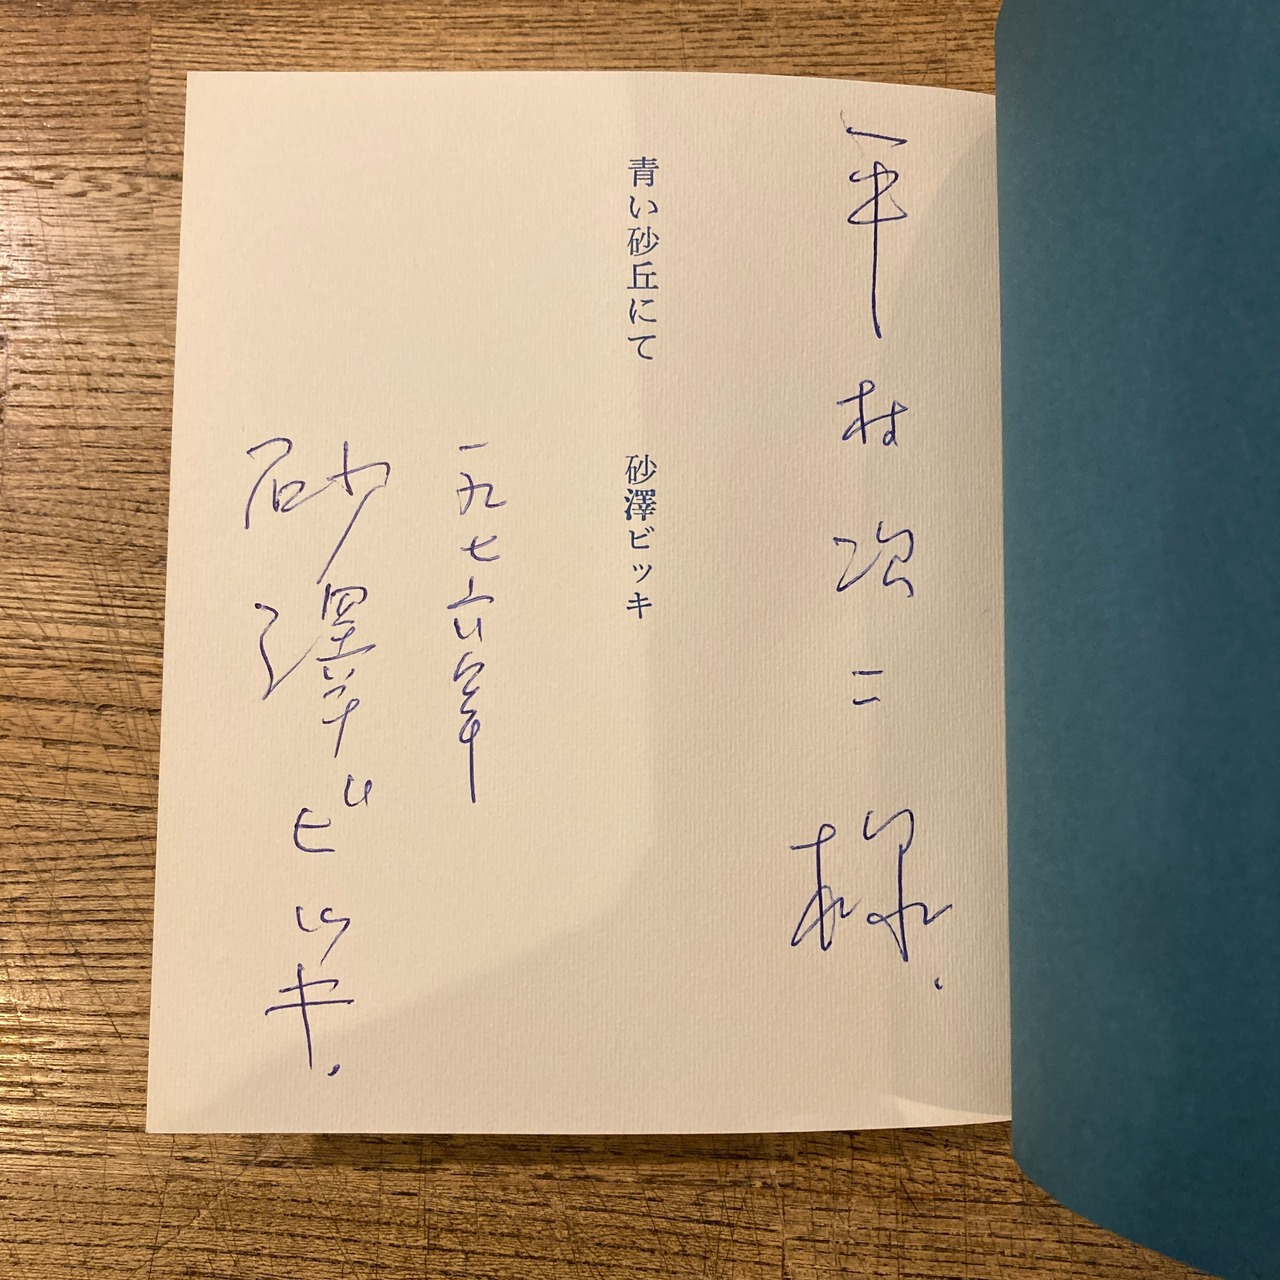 平村次二様.
青い砂丘にて 砂澤ビッキ
一九七六年
砂澤ビッキ.